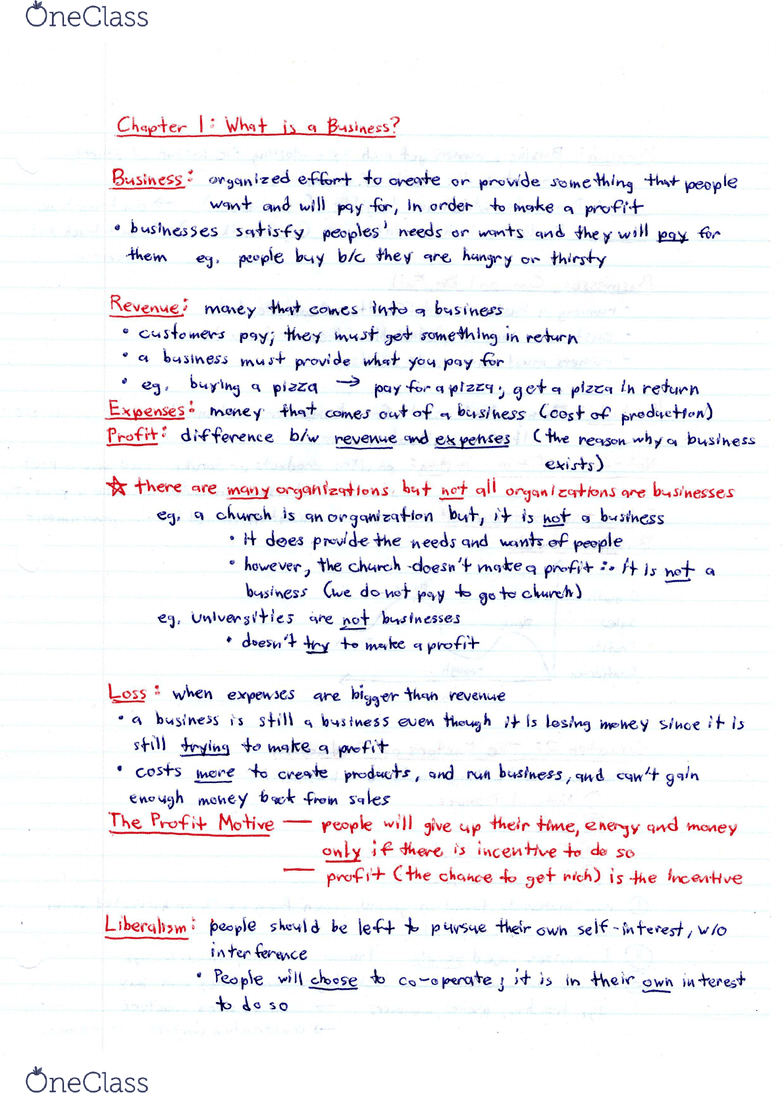 OneClass
Chapter 1: What is a Business?
Business: organized effort to create or provide something that people
want and will pay for, in order to make a profit
• businesses satisfy peoples' needs or wants and they will pay for
them eg. people buy b/c they are hungry or thirsty
Revenue: money that comes into a business
• customers pay; they must get something in return
• a business must provide what you pay for
• eg. buying a pizza → pay for a pizza; get a pizza in return
Expenses: money that comes out of a business (cost of production)
Profit: difference b/w revenue and expenses (the reason why a business
exists)
☆ there are many organizations, but not all organizations are businesses
eg. a church is an organization but, it is not a business
• it does provide the needs and wants of people
• however, the church doesn't make a profit ∴ it is not a
business (we do not pay to go to church)
eg. universities are not businesses
• doesn't try to make a profit
Loss: when expenses are bigger than revenue
• a business is still a business even though it is losing money since it is
still trying to make a profit
• costs more to create products, and run business, and can't gain
enough money back from sales
The Profit Motive — people will give up their time, energy and money
only if there is incentive to do so
— profit (the chance to get rich) is the incentive
Liberalism: people should be left to pursue their own self-interest, w/o
interference
• People will choose to co-operate; it is in their own interest
to do so
OneClass